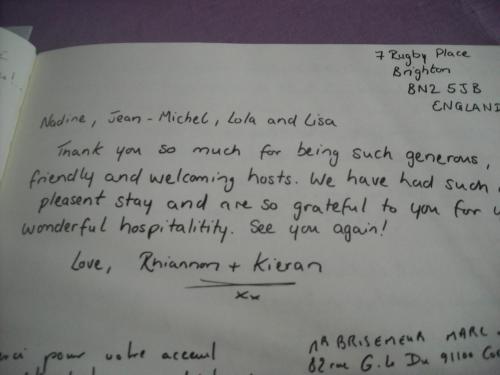 7 Rugby Place
Brighton
BN2 5JB
ENGLAND
Nadine, Jean-Michel, Lola and Lisa
Thank you so much for being such generous,
friendly and welcoming hosts. We have had such
pleasent stay and are so grateful to you for
wonderful hospitalitity. See you again!
Love, Rhiannon + Kieran
xx
pour votre accueil
Mr BRISEMEUR MARC
82 rue G. le Du 91100